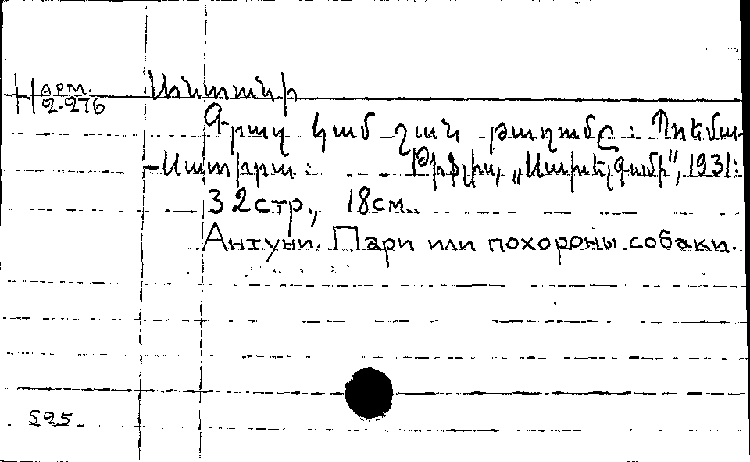 Н арм.
2-276
Անտունի
Գրազ կամ շան թաղումը: Պոեմա-
-Սատիրա: Թիֆլիս, „Սահելգամի", 1931:
32 стр., 18 см.
Антуни. Пари или похороны собаки.
595.